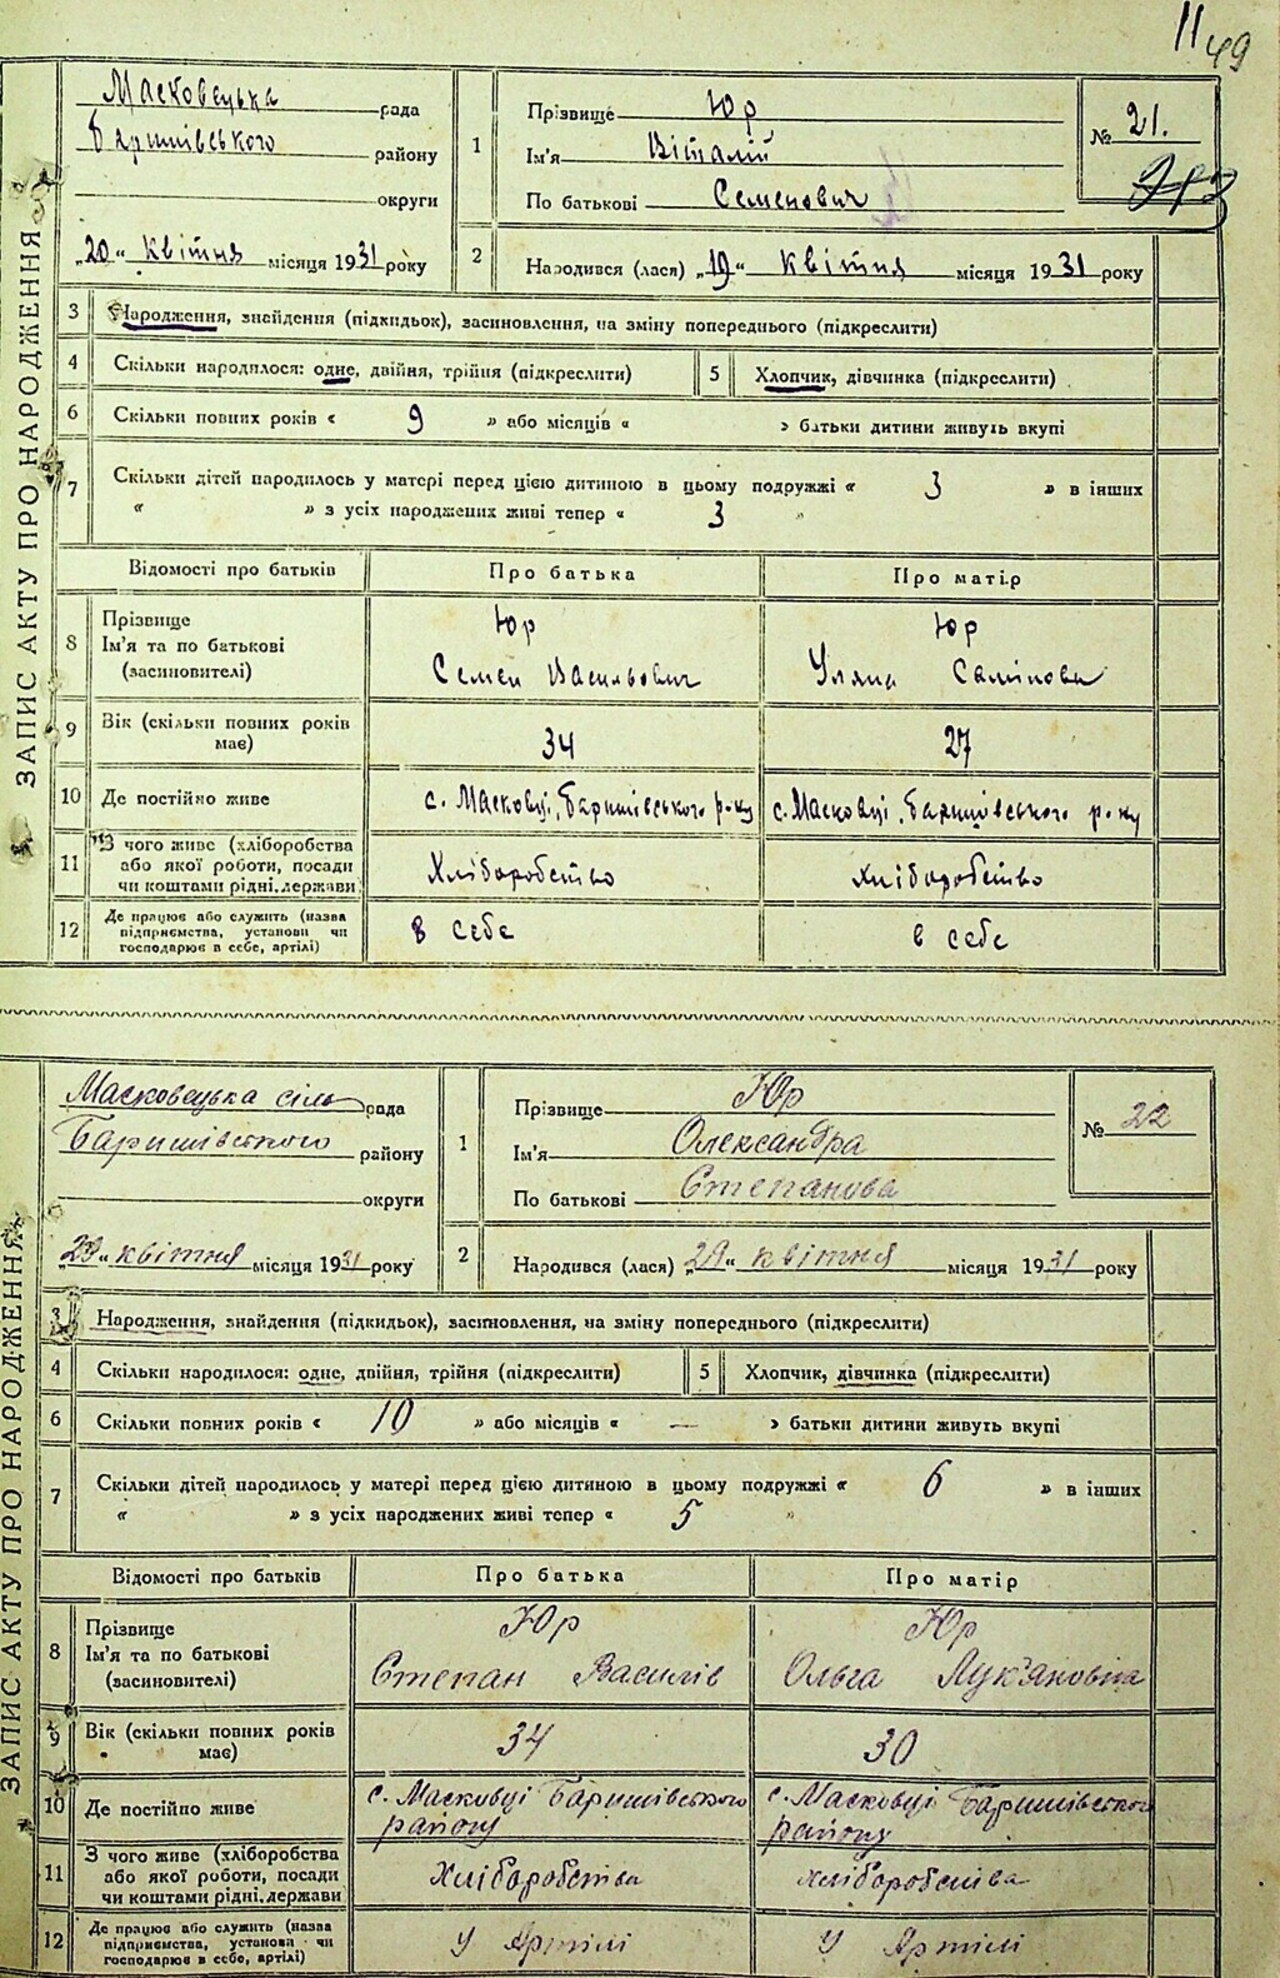 11 49
ЗАПИС АКТУ ПРО НАРОДЖЕННЯ
Масковецька рада
Баришівського району
округи
„20“ квітня місяця 1931 року
1
Прізвище Юр
Ім'я Віталій
По батькові Семенович
№ 21.
2
Народився (лася) „19“ квітня місяця 1931 року
3 Народження, знайдення (підкидьок), засиновлення, на зміну попереднього (підкреслити)
4 Скільки народилося: одне, двійня, трійня (підкреслити) 5 Хлопчик, дівчинка (підкреслити)
6 Скільки повних років « 9 » або місяців « » батьки дитини живуть вкупі
7 Скільки дітей народилось у матері перед цією дитиною в цьому подружжі « 3 » в інших
« » з усіх народжених живі тепер « 3 "
Відомості про батьків Про батька Про матір
8 Прізвище Юр Юр
Ім'я та по батькові Семен Васильович Уляна
(засиновителі)
9 Вік (скільки повних років має) 34 27
10 Де постійно живе с. Масковці, Баришівського р-ну с. Масковці, Баришівського р-ну
11 З чого живе (хліборобства Хліборобство хліборобство
або якої роботи, посади
чи коштами рідні, держави
12 Де працює або служить (назва в себе в себе
підприємства, установи чи
господарює в себе, артілі)
ЗАПИС АКТУ ПРО НАРОДЖЕННЯ
Масковецька сіль рада
Баришівського району
округи
„29“ квітня місяця 1931 року
1
Прізвище Юр
Ім'я Олександра
По батькові Степанова
№ 22
2
Народився (лася) „29“ квітня місяця 1931 року
3 Народження, знайдення (підкидьок), засиновлення, на зміну попереднього (підкреслити)
4 Скільки народилося: одне, двійня, трійня (підкреслити) 5 Хлопчик, дівчинка (підкреслити)
6 Скільки повних років « 10 » або місяців « — » батьки дитини живуть вкупі
7 Скільки дітей народилось у матері перед цією дитиною в цьому подружжі « 6 » в інших
« » з усіх народжених живі тепер « 5 "
Відомості про батьків Про батька Про матір
8 Прізвище Юр Юр
Ім'я та по батькові Степан Василів Ольга Лук'яновна
(засиновителі)
9 Вік (скільки повних років має) 34 30
10 Де постійно живе с. Масковці Баришівського району с. Масковці Баришівського району
11 З чого живе (хліборобства Хліборобства хліборобства
або якої роботи, посади
чи коштами рідні, держави
12 Де працює або служить (назва У Артілі У Артілі
підприємства, установи чи
господарює в себе, артілі)